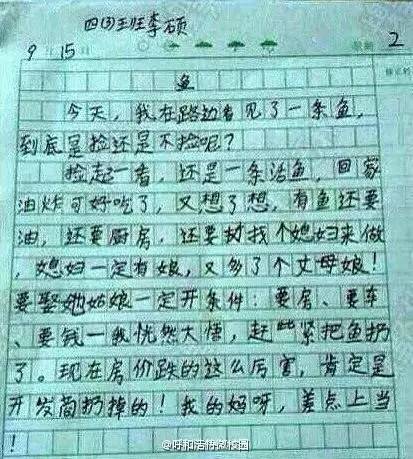 四(3)班李硕
9月15日 星期2
鱼
今天，我在路边看见了一条鱼，
到底是捡还是不捡呢？
捡起一看，还是一条活鱼，回家
油炸可好吃了，又想了想，有鱼还要
油，还要厨房，还要找个媳妇来做
，媳妇一定有娘，又多了个丈母娘！
要娶她姑娘一定开条件：要房、要车
、要钱—我恍然大悟，赶紧把鱼扔
了。现在房价跌的这么厉害，肯定是
开发商扔掉的！我的妈呀，差点上当
！